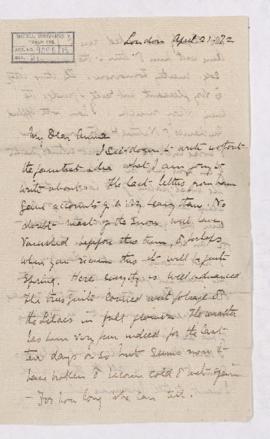 McGILL UNIVERSITY
ACC. NO.
REF.
London April 21. 72
My Dear Anna
I sit down to write without
the faintest idea what I am going to
write about. The last letters from home
gave accounts of
doubt most of the Snow will have
Vanished before this time, & perhaps
when you receive this it will be quite
Spring. Here everything is well advanced
the trees quite covered with foliage &
the lilacs in full flower. The weather
has been very fine indeed for the last
ten days or so but seems now to
have broken & become cold & wet again
— For how long who can tell.